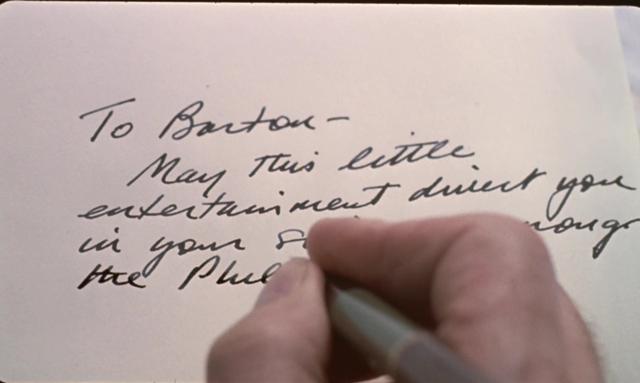 To Barton—
May this little
entertainment divert you
in your
the Phil